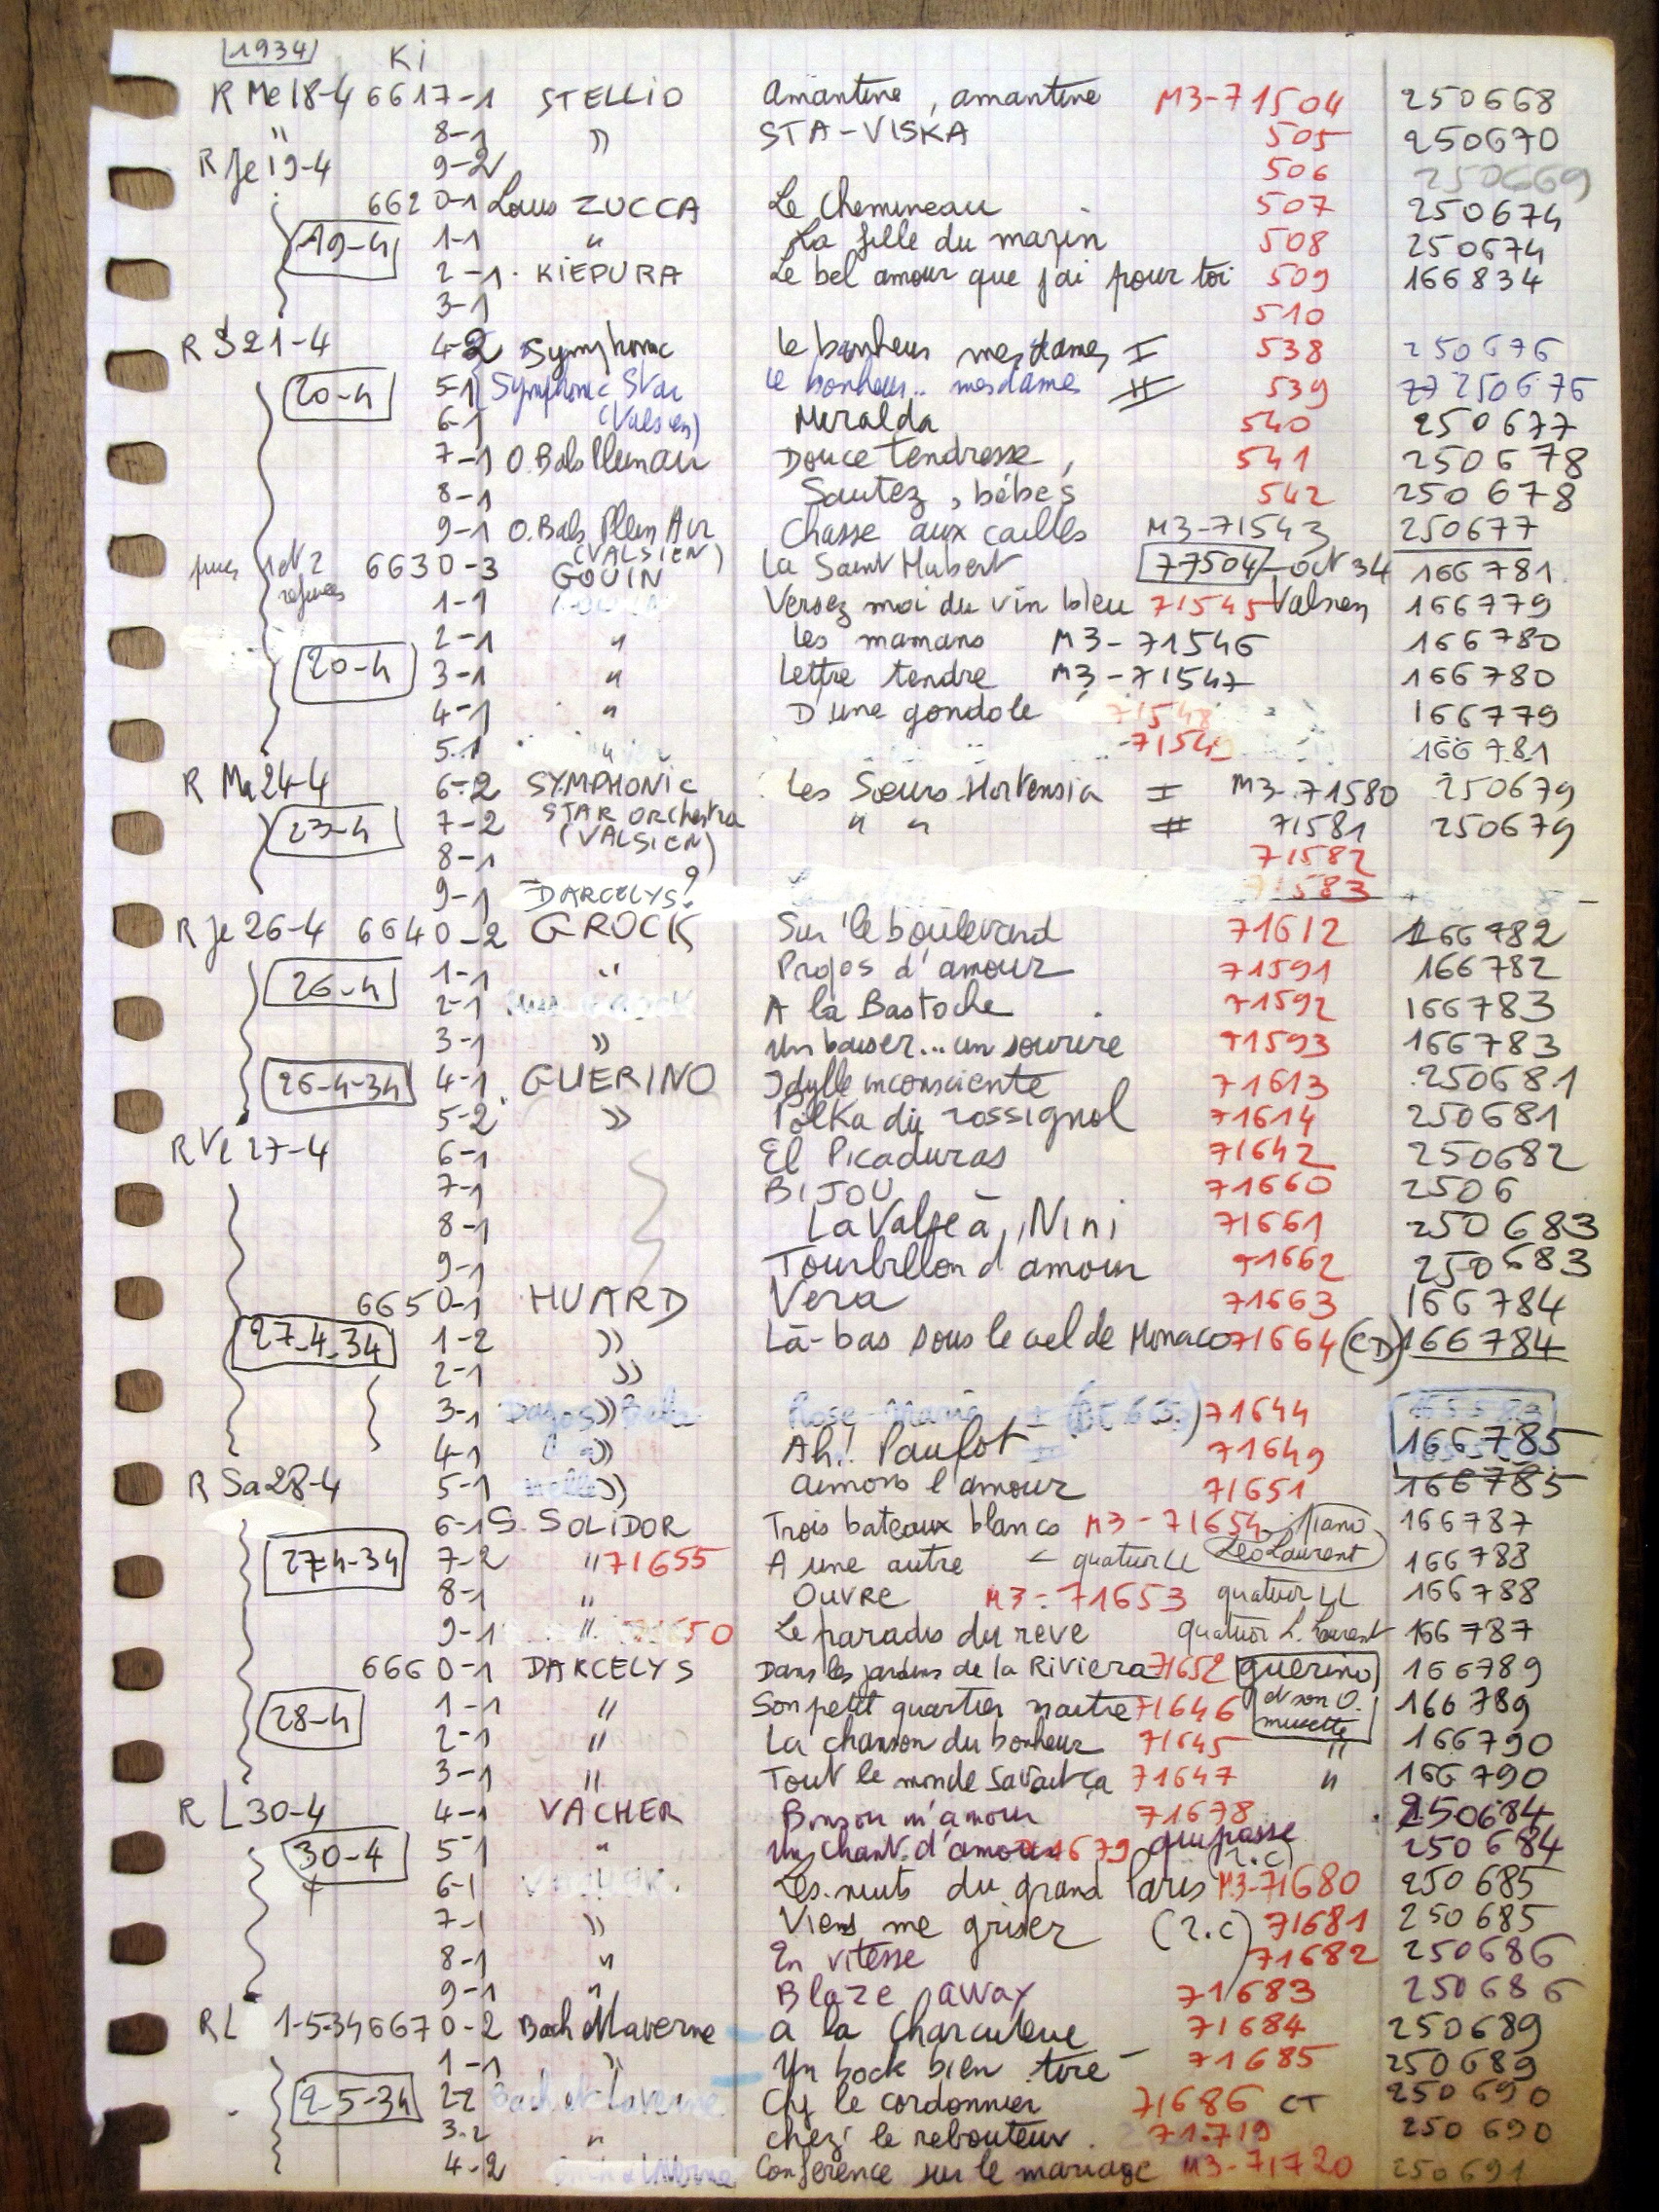 1934 Ki
R Me 18-4 6617-1 STELLIO Amantine, amantine M3-71504 250668
" 8-1 " STA-VISKA 505 250670
R Je 19-4 9-2 506 250669
6620-1 Louis ZUCCA Le Chemineau 507 250674
19-4 1-1 " La fille du marin 508 250674
2-1 KIEPURA Le bel amour que j'ai pour toi 509 166834
3-1 510
R S 21-4 4-2 Symphonic Le bonheur mesdames I 538 250676
20-4 5-1 Symphonic Star Le bonheur.. mesdames II 539 250676
6-1 (Valsien) Miralda 540 250677
7-1 O. Bals Plein air Douce tendresse, 541 250678
8-1 Sautez, bébés 542 250678
9-1 O. Bals Plein Air Chasse aux cailles M3-71543 250677
(VALSIEN)
prises 1 et 2 refusées 6630-3 GOUIN La Saint Hubert 77504 - oct 34 166781
1-1 Versez moi du vin bleu 71545 Valsien 166779
2-1 " Les mamans M3-71546 166780
20-4 3-1 " Lettre tendre M3-71547 166780
4-1 " D'une gondole 71548 166779
5-1 " 7154 166781
R Ma 24-4 6-2 SYMPHONIC Les Sœurs Hortensia I M3-71580 250679
23-4 7-2 STAR Orchestra " " II 71581 250679
8-1 (VALSIEN) 71582
9-1 DARCELYS? 71583
R Je 26-4 6640-2 GROCK Sur le boulevard 71612 166782
26-4 1-1 " Propos d'amour 71591 166782
2-1 A la Bastoche 71592 166783
3-1 " Un baiser... un sourire 71593 166783
26-4-34 4-1 GUERINO Idylle inconsciente 71613 250681
5-2 " Polka du rossignol 71614 250681
R Ve 27-4 6-1 El Picaduras 71642 250682
7-1 BIJOU 71660 2506
8-1 La Valse à Nini 71661 250683
9-1 Tourbillon d'amour 71662 250683
6650-1 HUARD Vera 71663 166784
27-4-34 1-2 " Là-bas sous le ciel de Monaco 71664 (CD) 166784
2-1 "
3-1 " Rose-Marie 71644
4-1 " Ah! Paulot 71649 166785
R Sa 28-4 5-1 " Aimons l'amour 71651 166785
6-1 S. SOLIDOR Trois bateaux blancs M3-71654 piano 166787
27-4-34 7-2 " 71655 A une autre - quatuor LL Leo Laurent 166788
8-1 " Ouvre M3-71653 quatuor LL 166788
9-1 " 50 Le paradis du rêve quatuor L. Laurent 166787
6660-1 DARCELYS Dans les jardins de la Riviera 71652 guerino 166789
28-4 1-1 " Son petit quartier maitre 71646 et son O. musette 166789
2-1 " La chanson du bonheur 71645 " 166790
3-1 " Tout le monde savait ça 71647 " 166790
R L 30-4 4-1 VACHER Bonson m'amour 71678 250684
30-4 5-1 " Un chant d'amour 71679 qui passe 250684
(r.c)
6-1 Les nuits du grand Paris M3-71680 250685
7-1 " Viens me griser (r.c) 71681 250685
8-1 " En vitesse 71682 250686
9-1 " Blaze away 71683 250686
R L 1-5-34 6670-2 Bach et Laverne A la Charcuterie 71684 250689
1-1 " Un bock bien tiré 71685 250689
2-5-34 2-2 Bach et Laverne Chez le cordonnier 71686 CT 250690
3-2 " chez le rebouteur 71.719 250690
4-2 Conférence sur le mariage M3-71720 250691